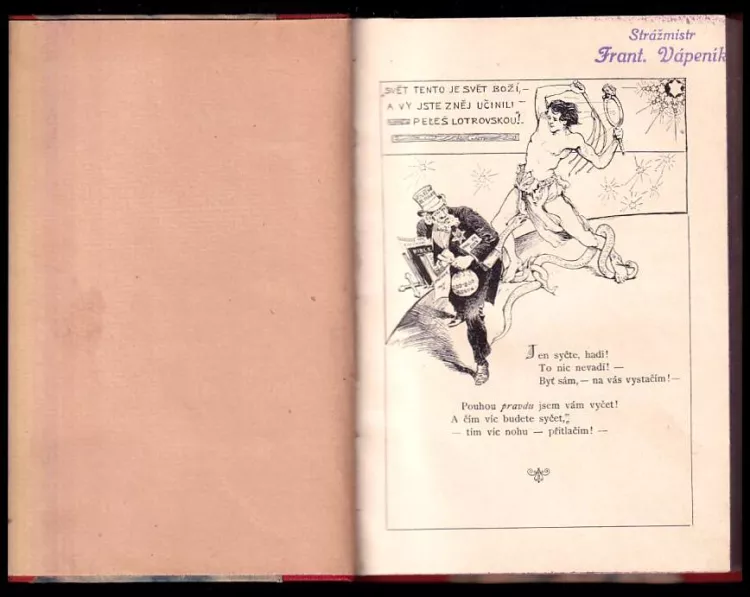 Strážmistr
Frant. Vápeník
SVĚT TENTO JE SVĚT BOŽÍ,–
A VY JSTE Z NĚJ UČINILI –
PELEŠ LOTROVSKOU!.
BIBLE
Jen syčte, hadi!
To nic nevadí! —
Byť sám, — na vás vystačím! —
Pouhou pravdu jsem vám vyčet!
A čím víc budete syčet,
— tím víc nohu — přitlačím! —